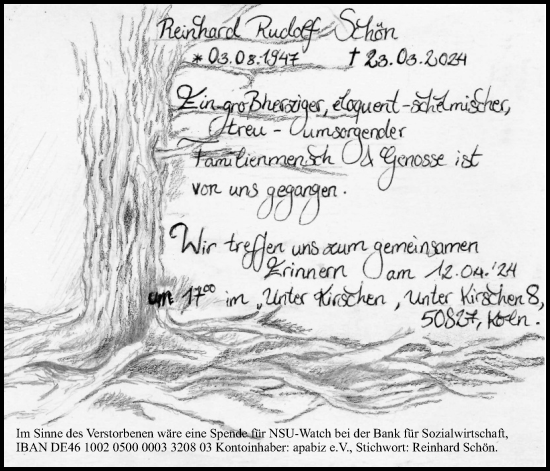 Reinhard Rudolf Schön
* 03.08.1947 † 23.03.2024
Ein großherziger, eloquent-schelmischer,
treu-umsorgender
Familienmensch & Genosse ist
von uns gegangen.
Wir treffen uns zum gemeinsamen
Erinnern am 12.04.'24
um 17⁰⁰ im „Unter Kirschen", Unter Kirschen 8,
50827, Köln.
Im Sinne des Verstorbenen wäre eine Spende für NSU-Watch bei der Bank für Sozialwirtschaft,
IBAN DE46 1002 0500 0003 3208 03 Kontoinhaber: apabiz e.V., Stichwort: Reinhard Schön.